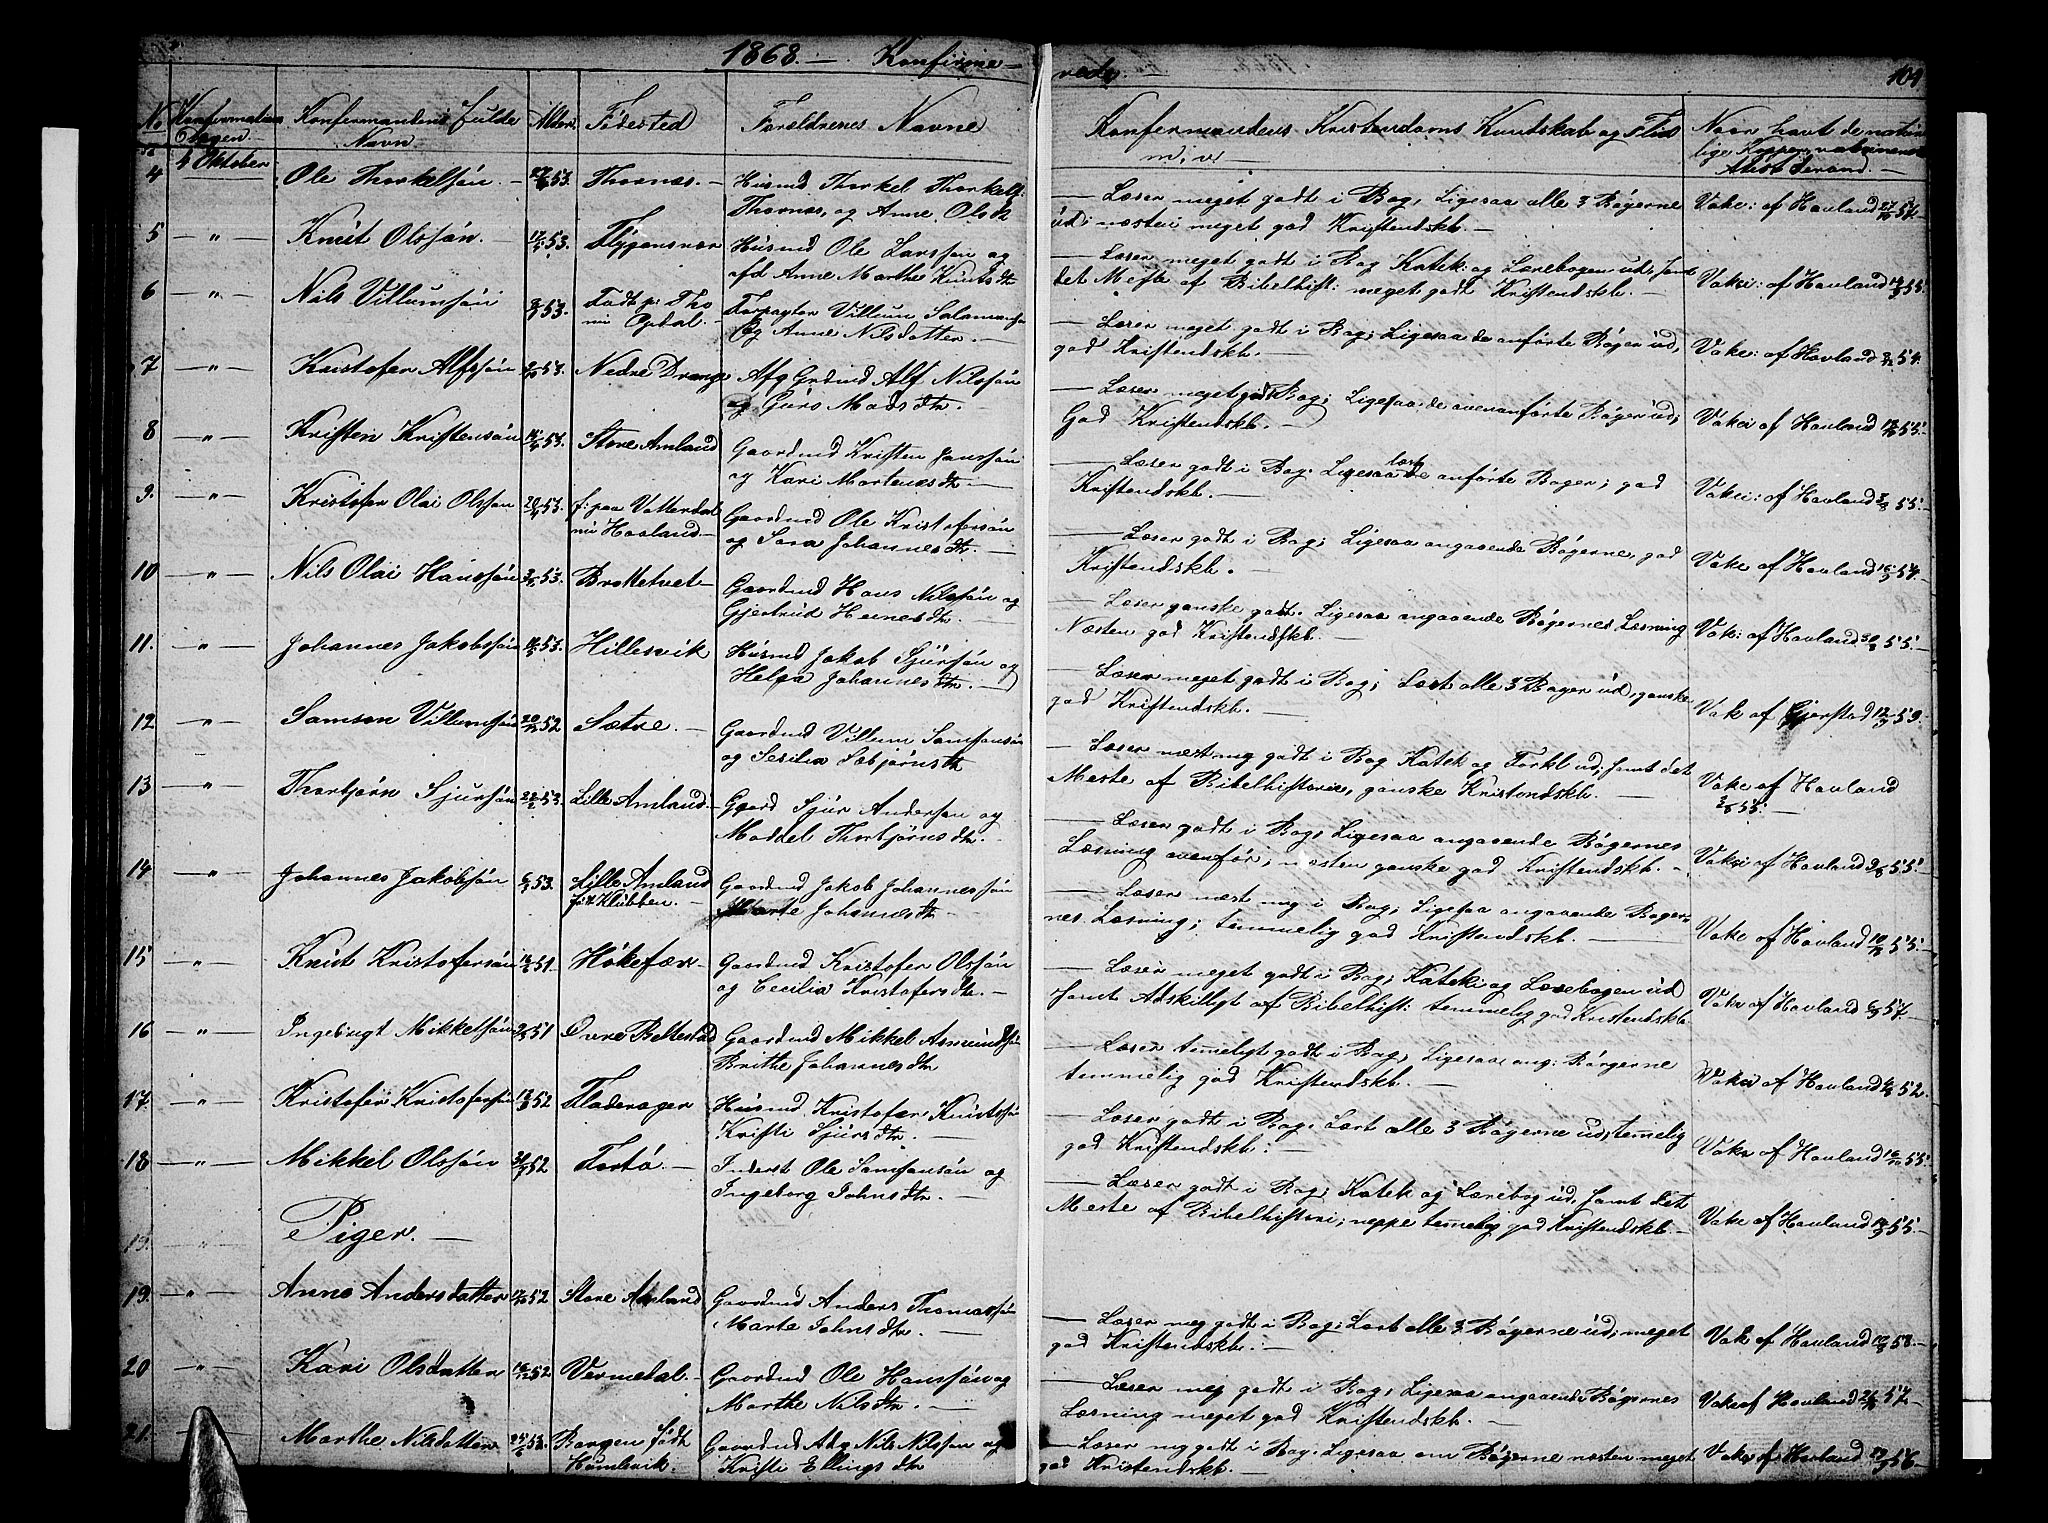 1868. — Konfirme-
rede. — 104
No
Konfirmations
Dagen
Konfermandens fulde
Navn
Alder
Födested
Forældrenes Navne
Konfermandens Kristendoms Kundskab og Flid
m. v.
Naar havt de natur-
lige Kopper, vaksineret
Attest derand.
4 Oktober
4 Ole Thorkelsön. — 53. Thornes. — Husmd Thorkel Thorkels.
Thornes, og Anne Olsdt.
— Læser meget godt i Bog, Ligesaa alle 3 Bögerne
ud; næsten meget god Kristendskb. —
Vake: af Havland 54. —
5 — " — Knut Olssön. — 53. Flygensvær Husmd Ole Larssön og
afd Anne Marthe Knutsdtr
— Læser meget godt i Bog Katek: og Lærebogen ud, samt
det Meste af Bibelhist: meget godt Kristendskb. —
Vakei: af Havland 55.
6 — " — Nils Villumsön 53. Födt p. Tho
nu Opdal. — Forpagter Villum Salamons
og Anne Nilsdatter. —
— Læser meget godt i Bog, Ligesaa de anförte Böger ud,
god Kristendskb. —
Vake: af Havland 54.
7 — " — Kristofer Alfssön 53. Nedre Drange Afg Grdmd Alf Nilssön
og Guro Mads dtr. —
— Læser meget godt i Bog; Ligesaa de ovenanförte Böger ud;
God Kristendskb. —
Vakei af Havland 55.
8 — " — Kristen Kristensön 53. Store Amland Gaardmd Kristen Janssön
og Kari Martensdtr. —
— Læser godt i Bog. Ligesaa læst de anförte Böger; god
Kristendskb. —
Vakei: af Havland 55.
9. — " — Kristofer Olai Olssön 53. f: paa Vatterdal
nu Havland — Gaardmd Ole Kristofersön
og Sara Johannesdtr. —
— Læser godt i Bog; Ligesaa angaaende Bögerne, god
Kristendskb. —
Vake af Havland 54. —
10 — " — Nils Olai Hanssön 53. Brattetvet — Gaardmd Hans Nilssön og
Gjertrud Heinesdtr. —
— Læser ganske godt. Ligesaa angaaende Bögernes Læsning
Næsten god Kristendskb. —
Vak: af Havland 55. —
11. — " — Johannes Jakobssön 53. Hillesvik Husmd Jakob Sjursön og
Helga Johannesdtr. —
— Læser meget godt i Bog; Læst alle 3 Böger ud, ganske
god Kristendskb. —
Vak af Gjerstad 59.
12 — " — Samson Villumsön 52 Sætre. — Gaardmd Villum Samsonsön
og Sesilia Sebjörnsdtr
— Læser mest mg godt i Bog Katek og Forkl ud; samt det
Meste af Bibelhistorie, ganske Kristendskb. —
Vake af Havland
55. —
13 — " — Thorbjörn Sjursön 53 Lille Amland — Gaard Sjur Anderson og
Maddel Thorbjörnsdtr. —
— Læser godt i Bog, Ligesaa angaaende Bögernes
Læsning ovenfor; næsten ganske god Kristendskb. —
Vakei af Havland 55.
14 — " — Johannes Jakobsön 53. Lille Amland
föt Klubben. — Gaardmd Jakob Johannessön
Marte Johannesdtr —
— Læser mest mg i Bog; Ligesaa angaaende Böger-
nes Læsning; temmelig god Kristendskb. —
Vake af Havland 55. —
15 — " — Knut Kristofersön 51 Hökefær — Gaardmd Kristofer Olssön
og Cecilia Kristofersdtr. —
— Læser meget godt i Bog; Kateki og Lærebogen ud
samt Adskilligt af Bibelhist: temmelig god Kristendskb
Vake af Havland 57. —
16 — " — Ingebrigt Mikkelsön 51 Övre Beltestad Gaardmd Mikkel Asmunds
Brithe Johannesdtr
— Læser temeligt godt i Bog, Ligesaa ang: Bögerne
temmelig god Kristendskb. —
Vakei af Havland 52.
17. — " — Kristofer Kristofersön 52 Fladerager Husmd Kristofer Knuts
Kristi Sjursdtr. —
— Læser godt i Bog. Læst alle 3 Bögerne ud; temelig
god Kristendskb. —
Vake af Havland 55.
18 — " — Mikkel Olssön 52 Fostö. — Inderst Ole Samsonsön og
Ingeborg Johnsdtr. —
— Læser godt i Bog; Katek og Lærebog ud, samt det
Meste af Bibelhistori; neppe temelig god Kristendskb. —
Vake af Havland 55. —
Piger. —
19. — " — Anne Andersdatter 52 Store Amland Gaardmd Anders Thomassön
Marte Johnsdtr. —
— Læser meg godt i Bog; Læst alle 3 Bögerne ud; meget
god Kristendskb. —
Vak af Havland 53. —
20 — " — Kari Olsdatter 52 Vermedal. — Gaardmd Ole Hanssön og
Marthe Nilsdtr. —
— Læser meg godt i Bog; Ligesaa angaaende Bögernes
Læsning meget god Kristendskb. —
Vake af Havland 57. —
21. — " — Marthe Nilsdatter 53. Bergen födt
Humlevik. Gaardmd Adg Nils Nilssön og
Kristi Ellingsdtr
— Læser mg godt i Bog. Ligesaa om Bögerne næsten meget
god Kristendskb. —
Vake af Havland 56 —